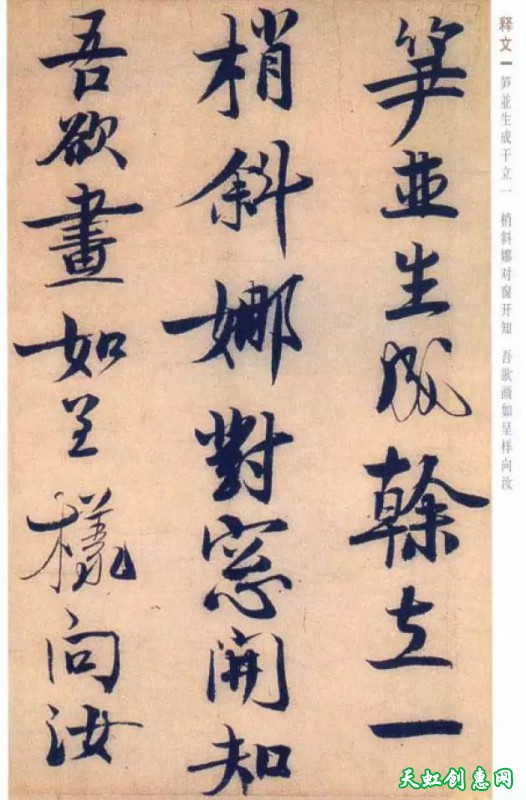 释文
笋並生成干立一 梢斜娜对窗开知 吾欲画如呈样向汝
笋並生成幹立一
梢斜娜對窓開知
吾欲畫如呈樣向汝
天虹创惠网